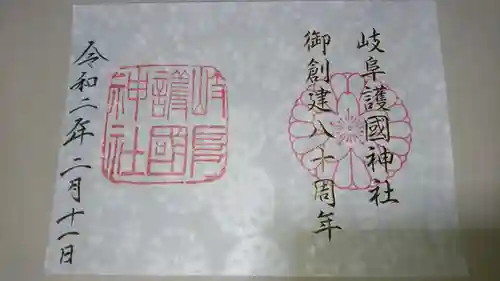 岐阜護國神社
御創建八十周年
岐阜
護國
神社
令和二年二月十一日